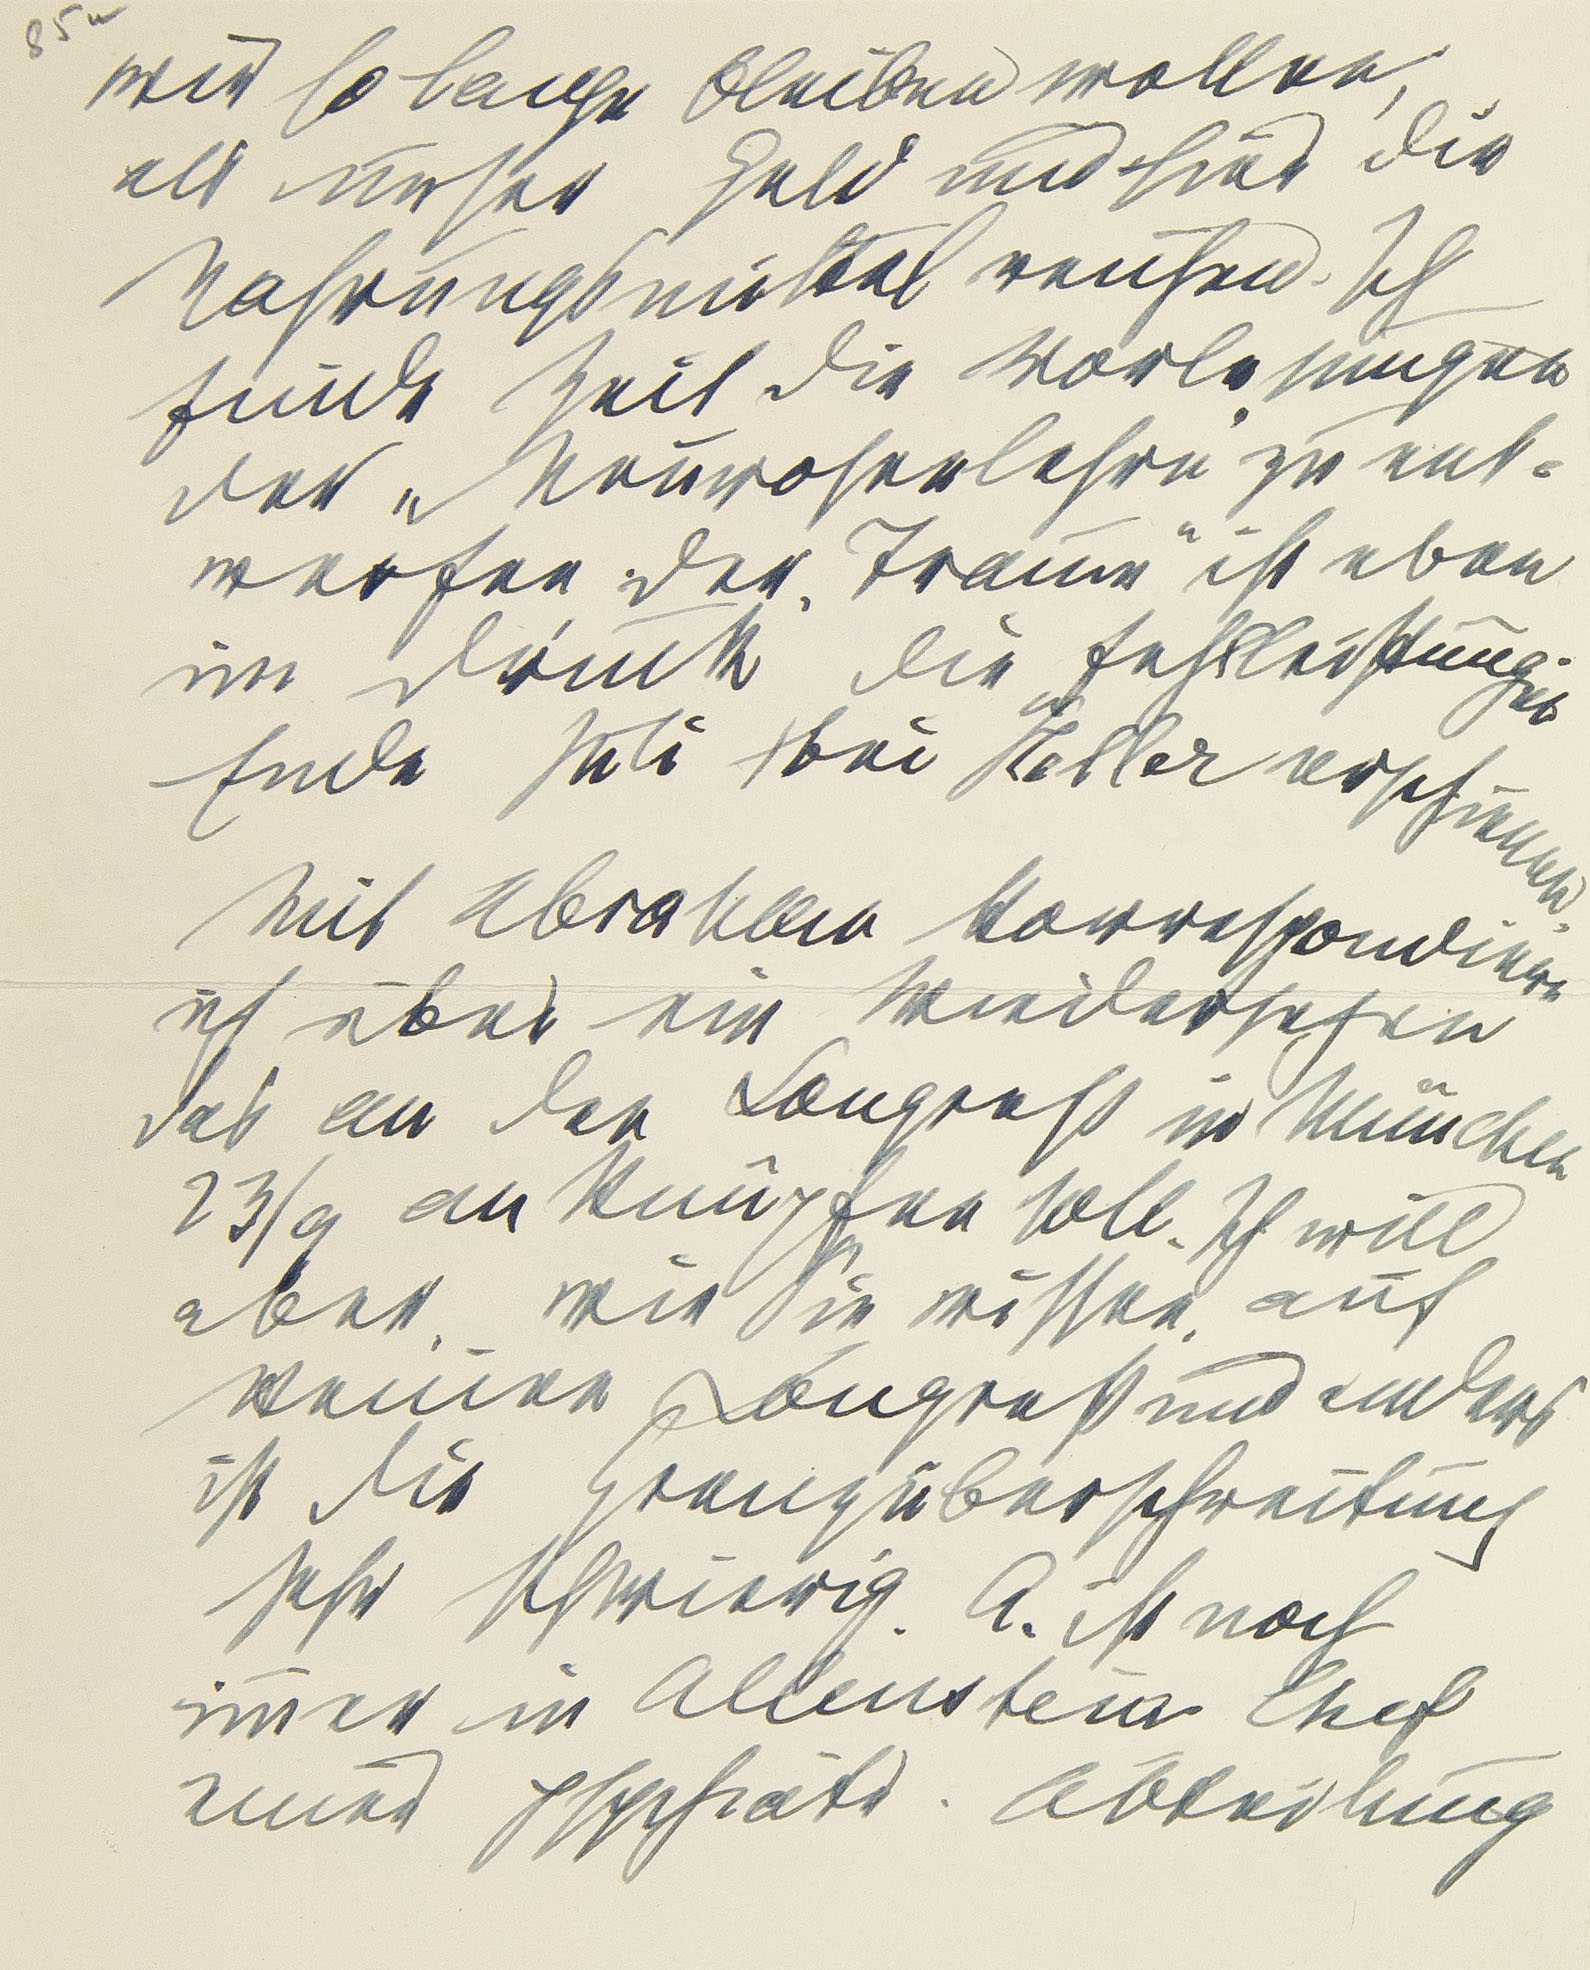 85w
wir so lange bleiben wollen,
als unser Geld und hier die
Nahrungsmittel reichen. Ich
finde Zeit die Vorlesungen
der „Neurosenlehre zu ent-
werfen. Der „Traum“ ist eben
im Druck die Fehlleistungen
Ende Juli bei Heller erschienen.
Mit Abraham korrespondiere
ich über ein Wiedersehen
das an den Congreß in München
23/9 anknüpfen soll. Ich will
aber, wie Sie wissen, auf
keinen Congreß und anders
ist die Grenzüberschreitung
sehr schwierig. A. ist noch
immer in Allenstein Chef
einer psychiatr. Abteilung